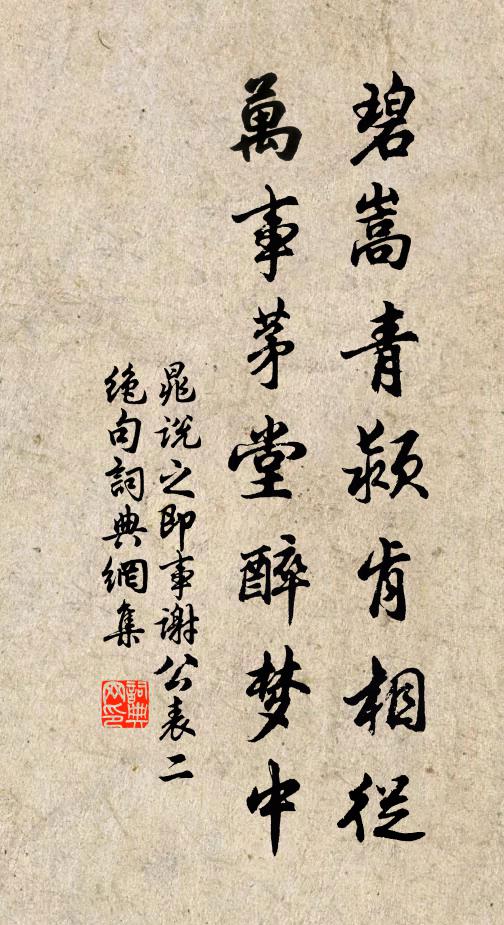 碧嵩青潁肯相從
萬事茅堂醉梦中
晁说之即事謝公表二
绝句詞典網集
詞典网印